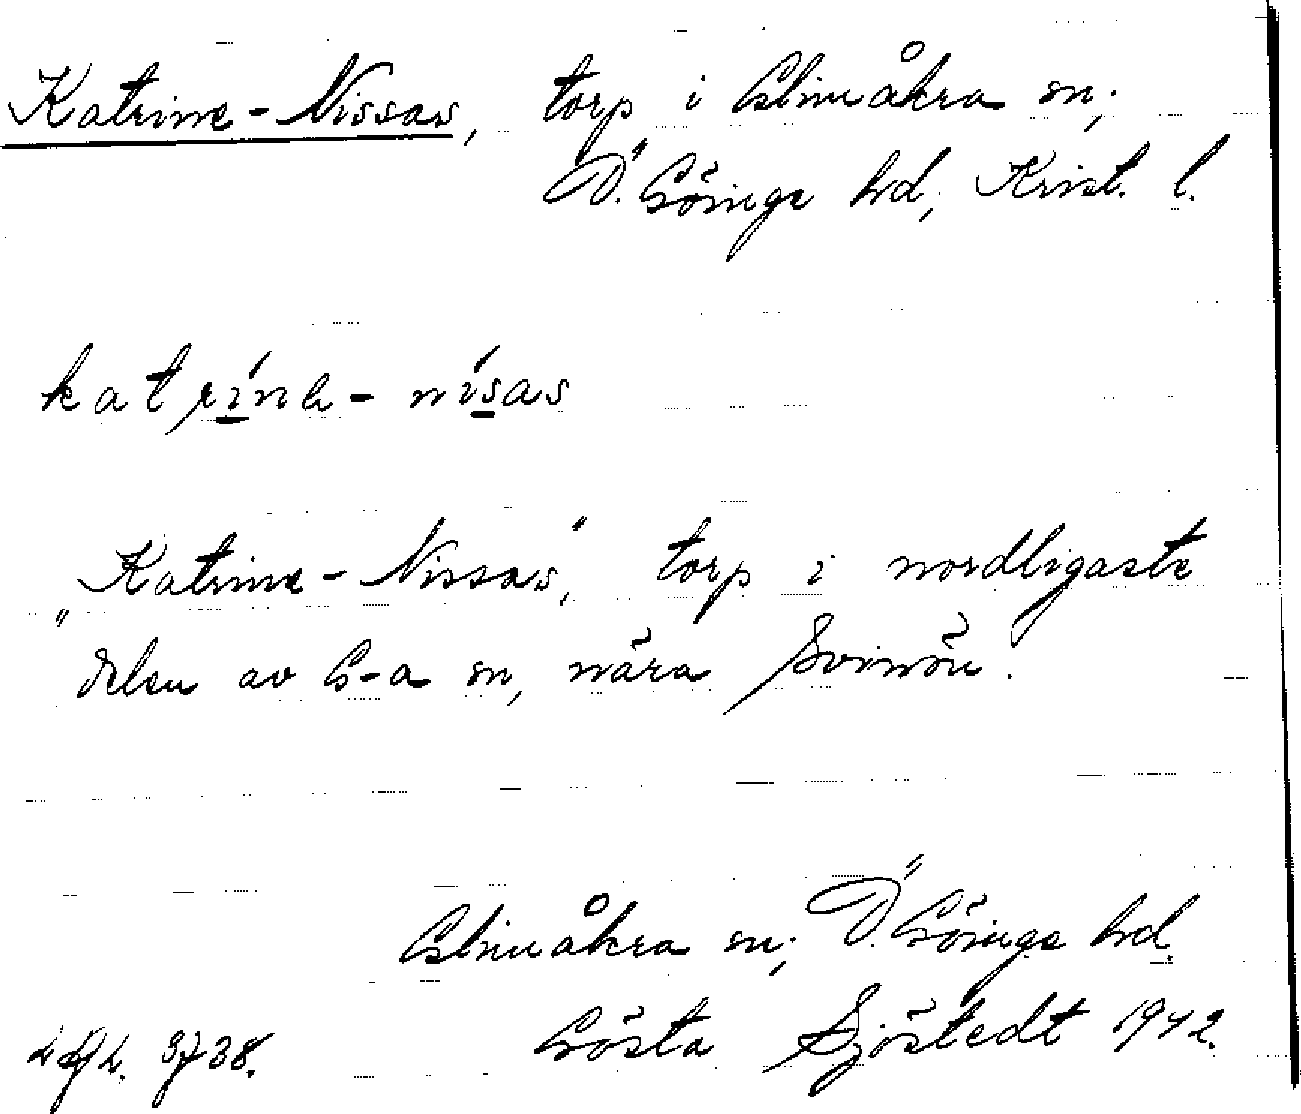 Katrine-Nissas, torp i Glimåkra sn;
Ö. Göinge hd, Krist. l.
katrine-nisas
"Katrine-Nissas", torp i nordligaste
delen av G-a sn, nära Svinön.
Glimåkra sn; Ö. Göinge hd.
Gösta Sjöstedt 1942.
3738.